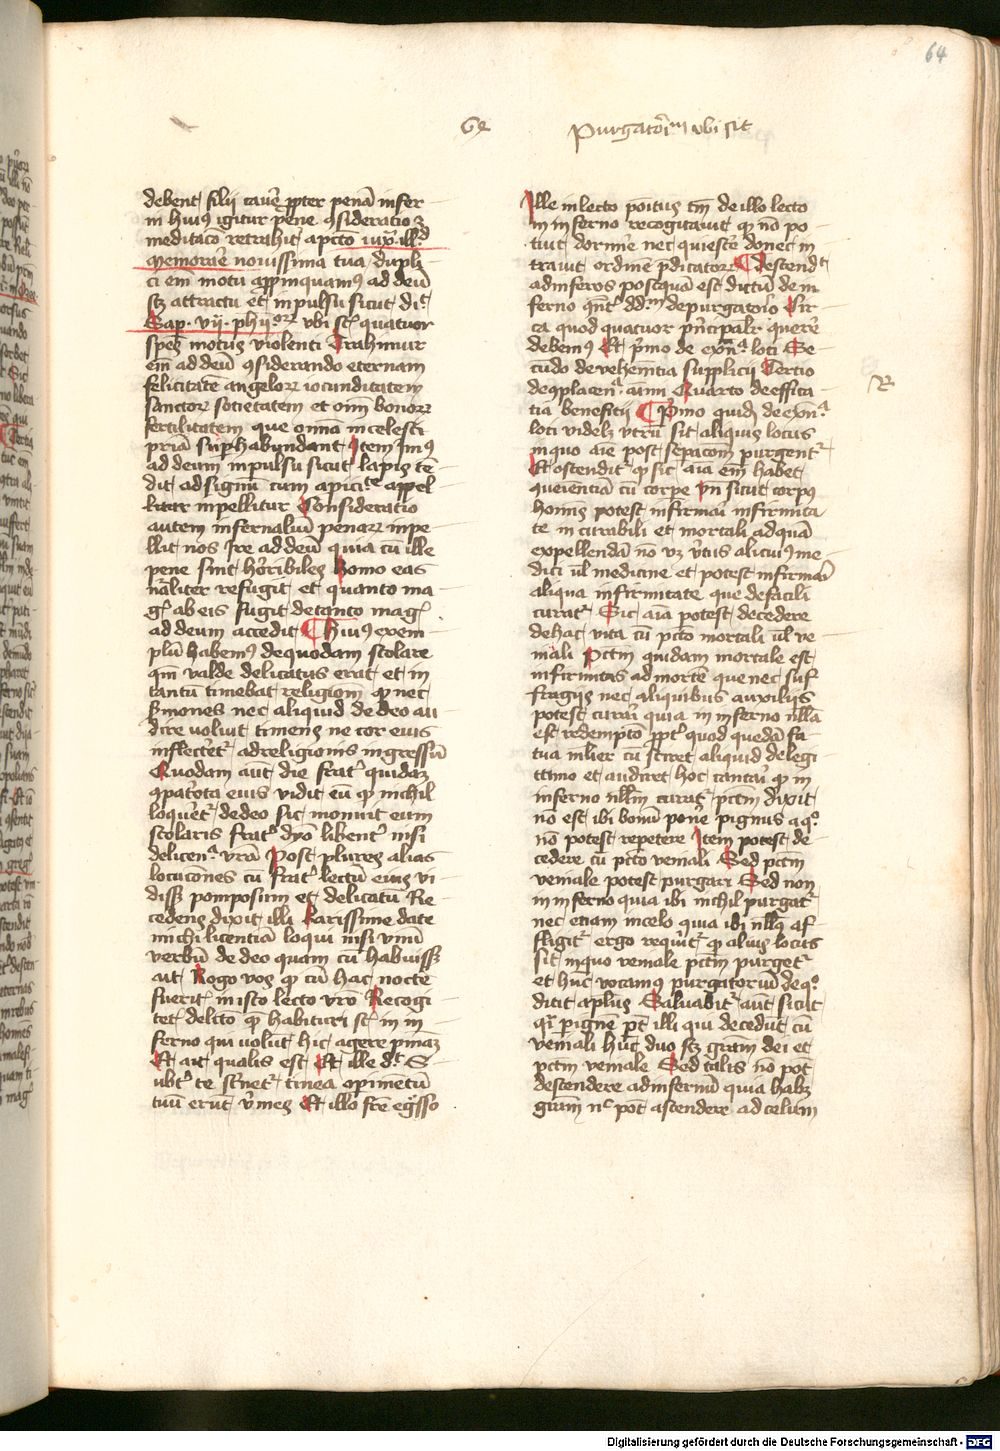 64
64
Purgatoriu͞ ubi sit
debent filii cave͞ ꝓpter pena͞ infer
ni huiꝰ igitur pene ꝯsideratio et
meditac͞o retrahit a pcc͞to iux͞ ill͞d
Memorare novissima tua dupli
ci em͞ motu appinquamꝰ ad deu͞
scz attractu et inpulsu sicut dr͞
Sap. vij. phijor͞. ubi st͞ quatuor
spe͞s motus violenti Trahimur
em͞ ad deu͞ ꝯsiderando eternam
felicitate͞ angeloꝝ iocunditatem
sanctoꝝ societatem et oi͞m bonoꝝ
fertilitatem que omnia in celesti
pr͞ia sup͞habundant Item Imꝰ
ad deum inpulsu sicut lapis te͞
dit ad signu͞ cum
inpellitur Consideratio
autem infernaliu͞ penaꝝ inpe
llit nos Ire ad deu͞ quia cu͞ ille
pene sint horribiles Homo eas
nr͞aliter refugit et quanto ma
g͞ ab eis fugit de tanto mag͞
ad deum accedit Huiꝰ exem
plu͞ habemꝰ de quodam scolare
qui͞ valde delicatus erat et in
tantu͞ timebat religione͞ ꝙ nec
s͞mones nec aliquid de deo au
dire voluit timens ne cor eius
inflecteret͞ ad religionis ingressu͞
Quodam aut͞ die frat͞ quidaz
ꝯpat͞ota eius vidit eu͞ ꝙ nichil
loquer͞et de deo sic monuit eum
scolaris frat͞ dix͞o libent͞ nisi
delicen͞ vr͞a Post plures alias
locuciones cu͞ frat͞ lectu͞ eius vi
disz pomposum et delicatu͞ Re
cedens dixit illi Karissime date
michi licentia͞ loqui nisi unu͞
verbu͞ de deo quam cu͞ habuisz
ait Rogo vos ꝙ cu͞ hac nocte
fuerit͞ in isto lecto vr͞o Recogi
tet͞ de lecto ꝙ habituri st͞ in in
ferno qui nolut͞ hic agere pn͞iaz
Et ait qualis est Et ille d͞t S
ubt͞ te st͞net͞ tinea opimetu͞
tuu͞ erut͞ v͞mes Et illo fr͞e egr͞sso
Ille in lecto poitus cm͞ de illo lecto
in inferno recogitavit ꝙ no͞ po
tuit dormir͞e nec quiesce͞ donec in
travit ordine͞ p͞dicatoꝝ Descend͞t
ad inferos Postqua͞ est dictu͞ de in
ferno q͞nt͞ dd͞m de purgator͞io Cir
ca quod quatuor pri͞ncipalr͞ quere͞
debemꝰ Et p͞mo de exn͞a loci Se
cu͞do de vehemen͞tia supplicii Tertio
de ꝯplacen͞a ai͞m Quarto de effica
tia beneficii Primo quid͞ de exn͞a
loci videlz utru͞ sit aliquis locus
in quo ai͞e post sep͞aco͞m purgent͞
Et ostendit͞ ꝙ sic ai͞a em͞ habet
ꝯvenientia͞ cu͞ corpe͞ Vn͞ sicut corpꝰ
homi͞s potest infirmari infirmita
te in curabili et mortali ad qua͞
expellenda͞ no͞ vz v͞tus alicuiꝰ me
dici ul͞ medicine et potest infirmar͞i
aliqua infirmitate que de facili
curat͞ Sic ai͞a potest decedere
de hac vita cu͞ pcc͞to mortali ul͞ ve
niali Pcc͞tm quidam mortale est
infirmitas ad morte͞ que nec suf
fragijs nec aliquibus auxilijs
potest curari quia in inferno nulla͞
est redemptio ppt͞ quod queda͞ fa
tua mlier͞ cu͞ sciret aliquid de legi
ttimo et audiret hoc cantari ꝙ in
inferno nllm͞ curat͞ pcc͞tm dixit
no͞ est ibi bonu͞ pone͞ pignus a qo͞
no͞ potest repetere Item potest de
cedere cu͞ pcc͞to veniali Sed pcc͞tm
veniale potest purgari Sed non
in inferno quia ibi nichil purgat͞
nec etiam in celo quia ibi nllꝰ af
fligit͞ ergo requi͞rit͞ ꝙ alius locus
sit in quo veniale pcc͞tm purget͞
et huc͞ vocamꝰ purgatoriu͞ de qo͞
dicit apl͞us Salvabit͞ aut͞ sicut
qi͞ p͞ igne͞m Pt͞ illi qui decedu͞t cu͞
veniali huc͞ duo scz gram͞ dei et
pcc͞tm veniale Sed talis no͞ pot͞
descendere ad infernu͞ quia habz
gram͞ nc͞ pot͞ ascendere ad celum
Digitalisierung gefördert durch die Deutsche Forschungsgemeinschaft - DFG